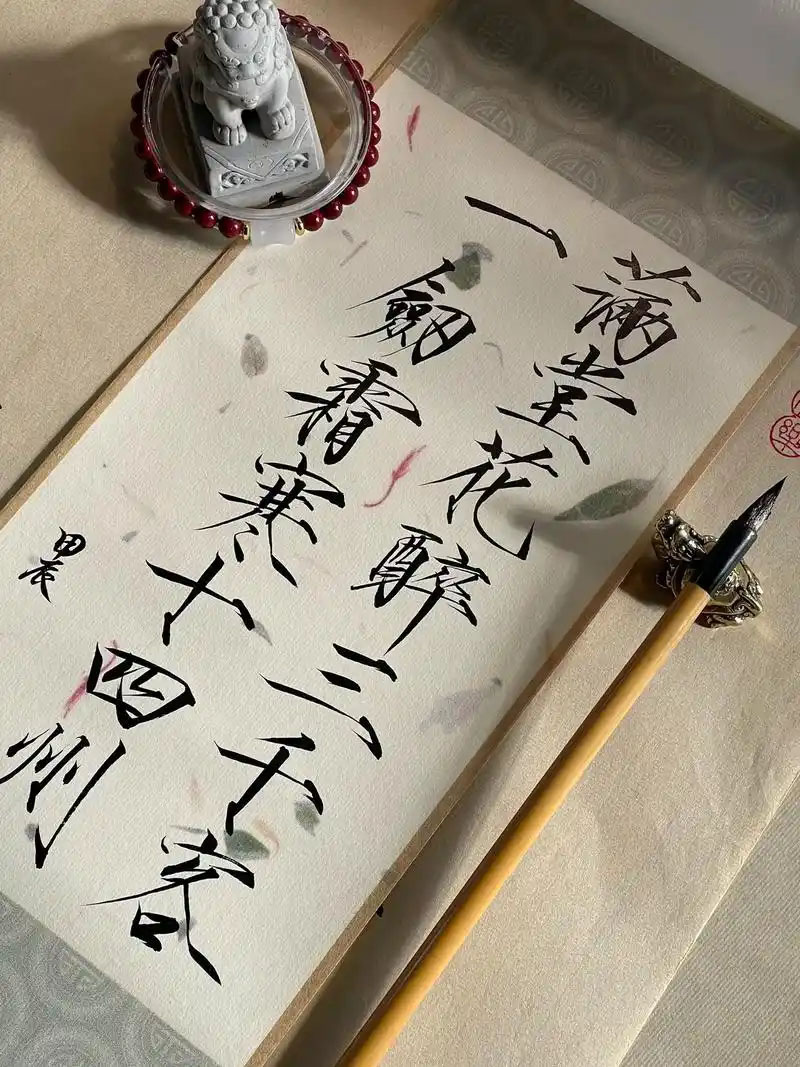 满堂花醉三千客
一劒霜寒十四州
甲辰